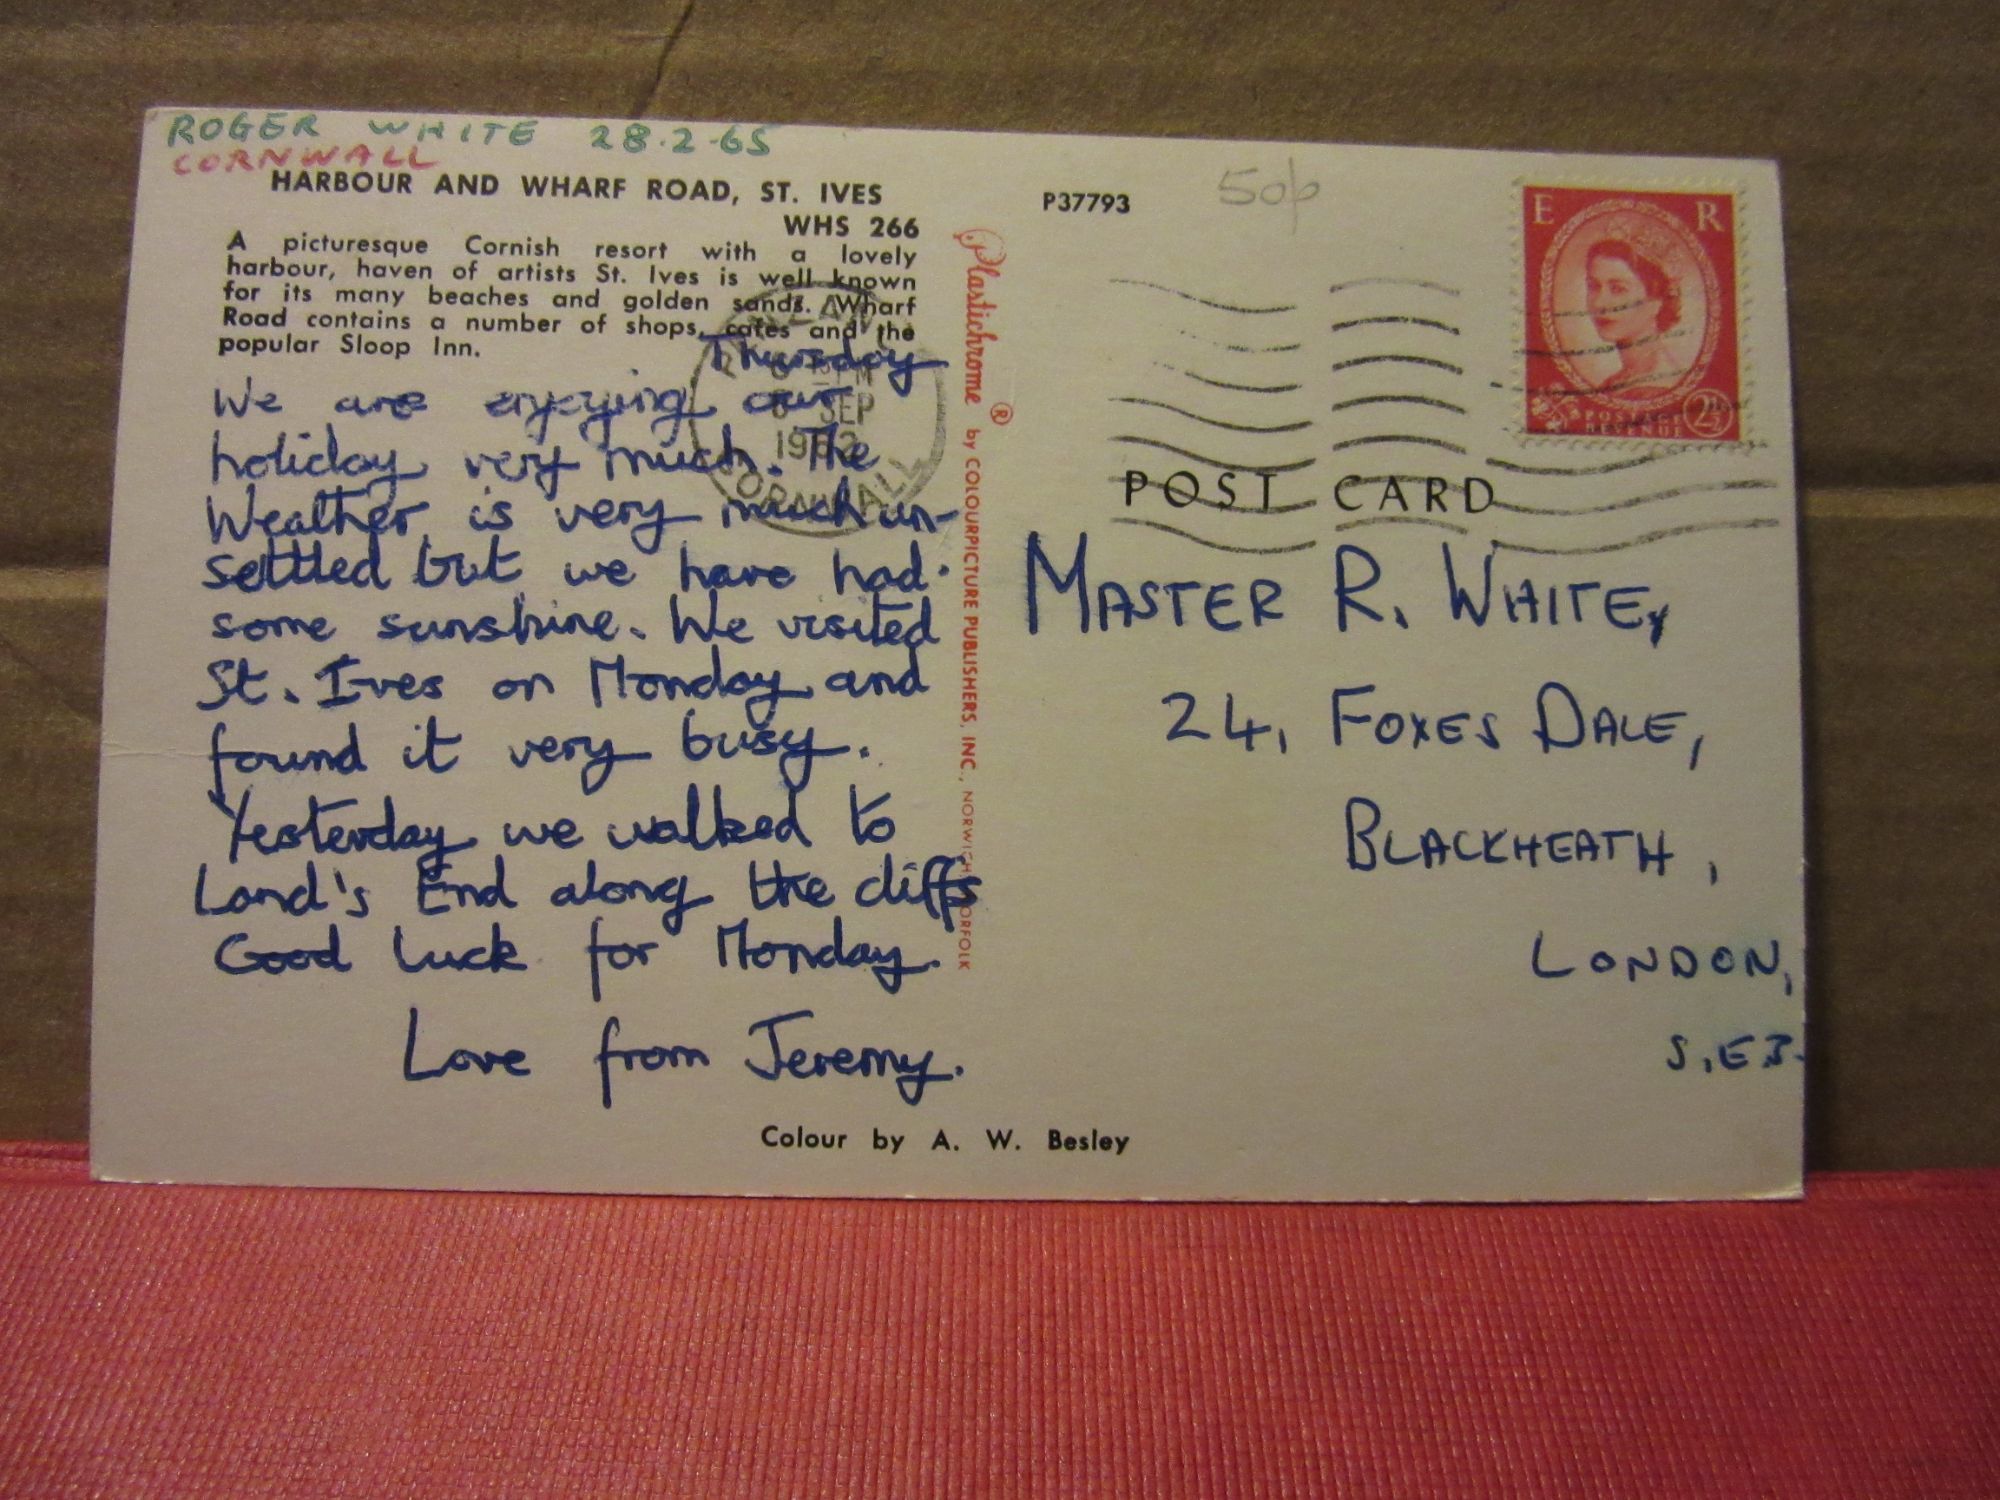 ROGER WHITE 28.2.65
CORNWALL
HARBOUR AND WHARF ROAD, ST. IVES
WHS 266
A picturesque Cornish resort with a lovely
harbour, haven of artists St. Ives is well known
for its many beaches and golden sands. Wharf
Road contains a number of shops, cafes and the
popular Sloop Inn.
Thursday
We are enjoying our
holiday very much. The
Weather is very much un-
settled but we have had.
some sunshine. We visited
St. Ives on Monday and
found it very busy.
Yesterday we walked to
Land's End along the cliffs
Good Luck for Monday.
Love from Jeremy.
SEP
CORNWALL
Plastichrome ® by COLOURPICTURE PUBLISHERS, INC., NORWICH NORFOLK
P37793
50p
E R
POSTAGE
REVENUE
2½
POST CARD
MASTER R. WHITE,
24, FOXES DALE,
BLACKHEATH,
LONDON,
S.E3.
Colour by A. W. Besley